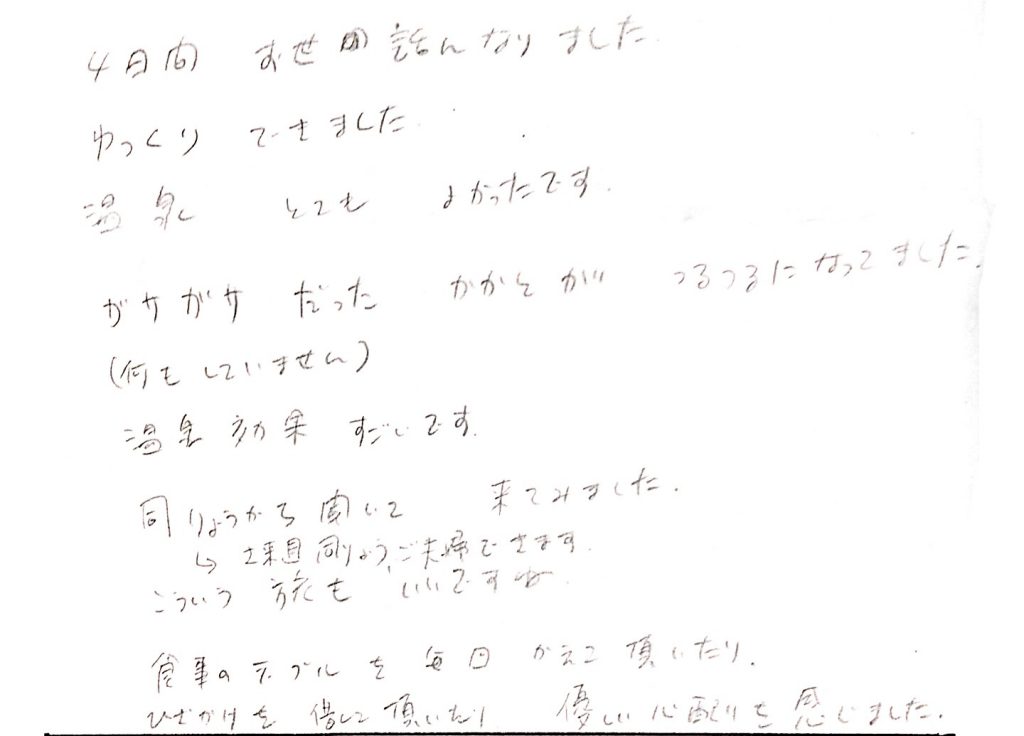 4日間 お世の話んなりました.
ゆっくり できました.
温泉 とても よかったです.
ガサガサ だった かかとが つるつるになってました.
(何もしていません)
温泉効果 すごいです.
同りょうから聞いて 来てみました.
↳ 来週同りょう、ご夫婦できます.
こういう 旅も いいですね.
食事のテーブルを 毎日 かえて 頂いたり.
ひざかけを 借して 頂いたり 優しい心配りを感じました.